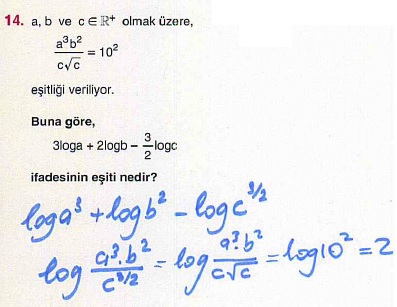 14. a, b ve c ∈ ℝ⁺ olmak üzere,
a³b² / c√c = 10²
eşitliği veriliyor.
Buna göre,
3loga + 2logb − 3/2 logc
ifadesinin eşiti nedir?
loga³ + logb² − logc^3/2
log a³.b² / c^3/2 = log a³.b² / c√c = log10² = 2